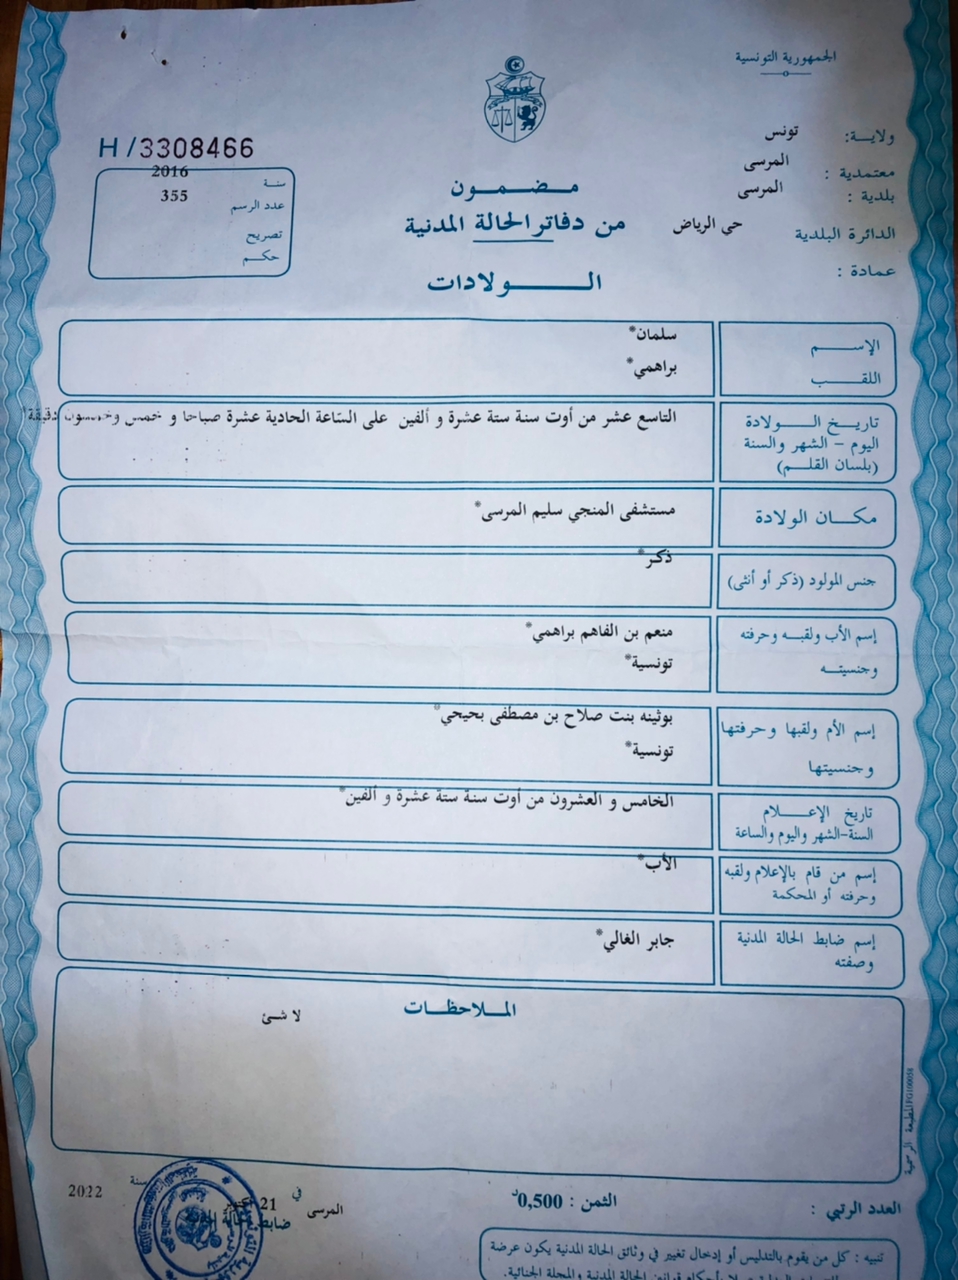 الجمهورية التونسية
ولاية: تونس
معتمدية : المرسى
بلدية : المرسى
الدائرة البلدية حي الرياض
عمادة :
H/3308466
سنة 2016
عدد الرسم 355
تصريح
حكم
مضمون
من دفاتر الحالة المدنية
الولادات
الإسم سلمان*
اللقب براهمي*
تاريخ الولادة
اليوم - الشهر والسنة
(بلسان القلم)
التاسع عشر من أوت سنة ستة عشرة و ألفين على الساعة الحادية عشرة صباحا و خمس وخمسون دقيقة
مكان الولادة مستشفى المنجي سليم المرسى*
جنس المولود (ذكر أو أنثى) ذكر*
إسم الأب ولقبه وحرفته منعم بن الفاهم براهمي*
وجنسيته تونسية*
إسم الأم ولقبها وحرفتها بوثينه بنت صلاح بن مصطفى بحيحي*
وجنسيتها تونسية*
تاريخ الإعلام
السنة-الشهر واليوم والساعة
الخامس و العشرون من أوت سنة ستة عشرة و ألفين*
إسم من قام بالإعلام ولقبه
وحرفته أو المحكمة
الأب*
إسم ضابط الحالة المدنية
وصفته
جابر الغالي*
الملاحظات
لا شئ
المطبعة الرسمية
العدد الرتبي :
الثمن : 0,500د
المرسى في 21 سنة 2022
ضابط
تنبيه : كل من يقوم بالتدليس أو إدخال تغيير في وثائق الحالة المدنية يكون عرضة
الحالة المدنية والمجلة الجنائية.